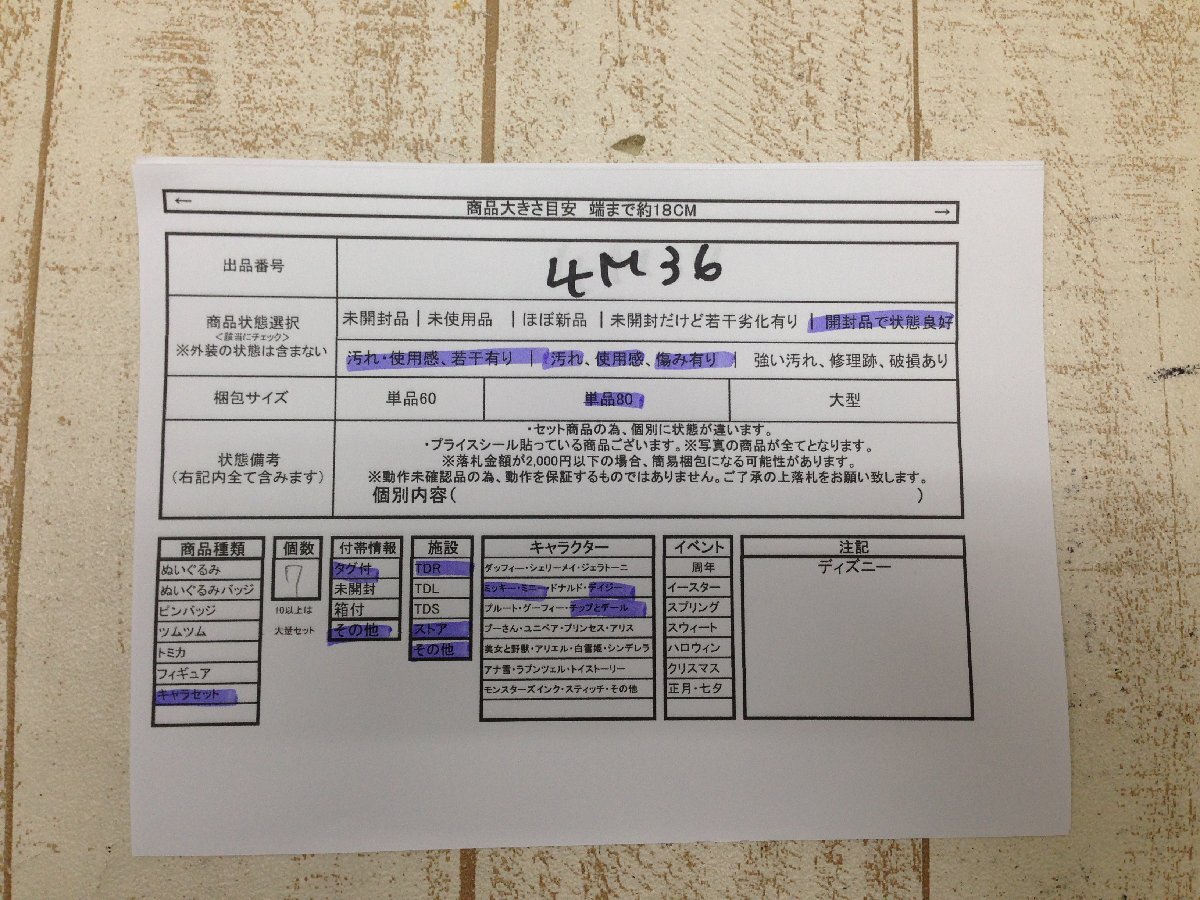 ← 商品大きさ目安 端まで約18CM →
出品番号 4M36
商品状態選択
<該当にチェック>
※外装の状態は含まない
未開封品 | 未使用品 | ほぼ新品 | 未開封だけど若干劣化有り | 開封品で状態良好
汚れ・使用感、若干有り | 汚れ、使用感、傷み有り | 強い汚れ、修理跡、破損あり
梱包サイズ 単品60 単品80 大型
状態備考
(右記内全て含みます)
・セット商品の為、個別に状態が違います。
・プライスシール貼っている商品ございます。※写真の商品が全てとなります。
※落札金額が2,000円以下の場合、簡易梱包になる可能性があります。
※動作未確認品の為、動作を保証するものではありません。ご了承の上落札をお願い致します。
個別内容( )
商品種類
ぬいぐるみ
ぬいぐるみバッジ
ピンバッジ
ツムツム
トミカ
フィギュア
キャラセット
個数
7
10以上は
大量セット
付帯情報
タグ付
未開封
箱付
その他
施設
TDR
TDL
TDS
ストア
その他
キャラクター
ダッフィー・シェリーメイ・ジェラトーニ
ミッキー・ミニードナルド・デイジー
プルート・グーフィー・チップとデール
プーさん・ユニベア・プリンセス・アリス
美女と野獣・アリエル・白雪姫・シンデレラ
アナ雪・ラプンツェル・トイストーリー
モンスターズインク・スティッチ・その他
イベント
周年
イースター
スプリング
スウィート
ハロウィン
クリスマス
正月・七夕
注記
ディズニー